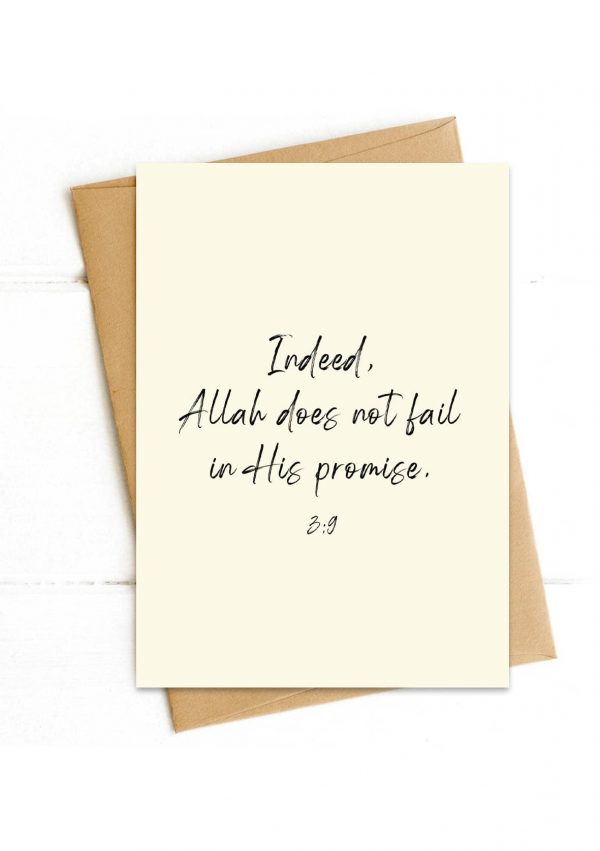 Indeed,
Allah does not fail
in His promise.
3:9